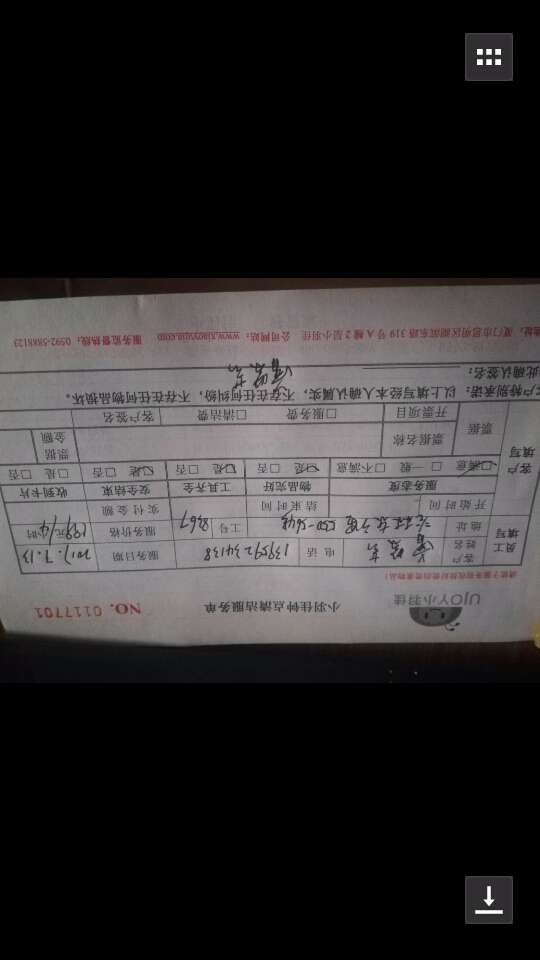 UJOY小羽佳
小羽佳钟点清洁服务单
NO. 0117701
请您于服务前收捡好您的贵重物品!
员工填写
客户姓名
电话 13959234138
服务日期 2017.7.13
地址
工号 8267
服务价格 198元/4小时
开始时间
结束时间
实付金额
客户填写
服务态度 物品完好 工具齐全 安全结束 收到卡片
□满意 □一般 □不满意 □是 □否 □是 □否 □是 □否 □是 □否
票据
票据名称
票据金额
开票项目 □服务费 □清洁费 客户签名
客户特别承诺:以上填写经本人确认属实,不存在任何纠纷,不存在任何物品损坏。
此确认签名:
地址:厦门市思明区湖滨东路 319 号 A 幢 2 层小羽佳 公司网站:www.xiaoyujia.com 服务监督热线:0592-5888123